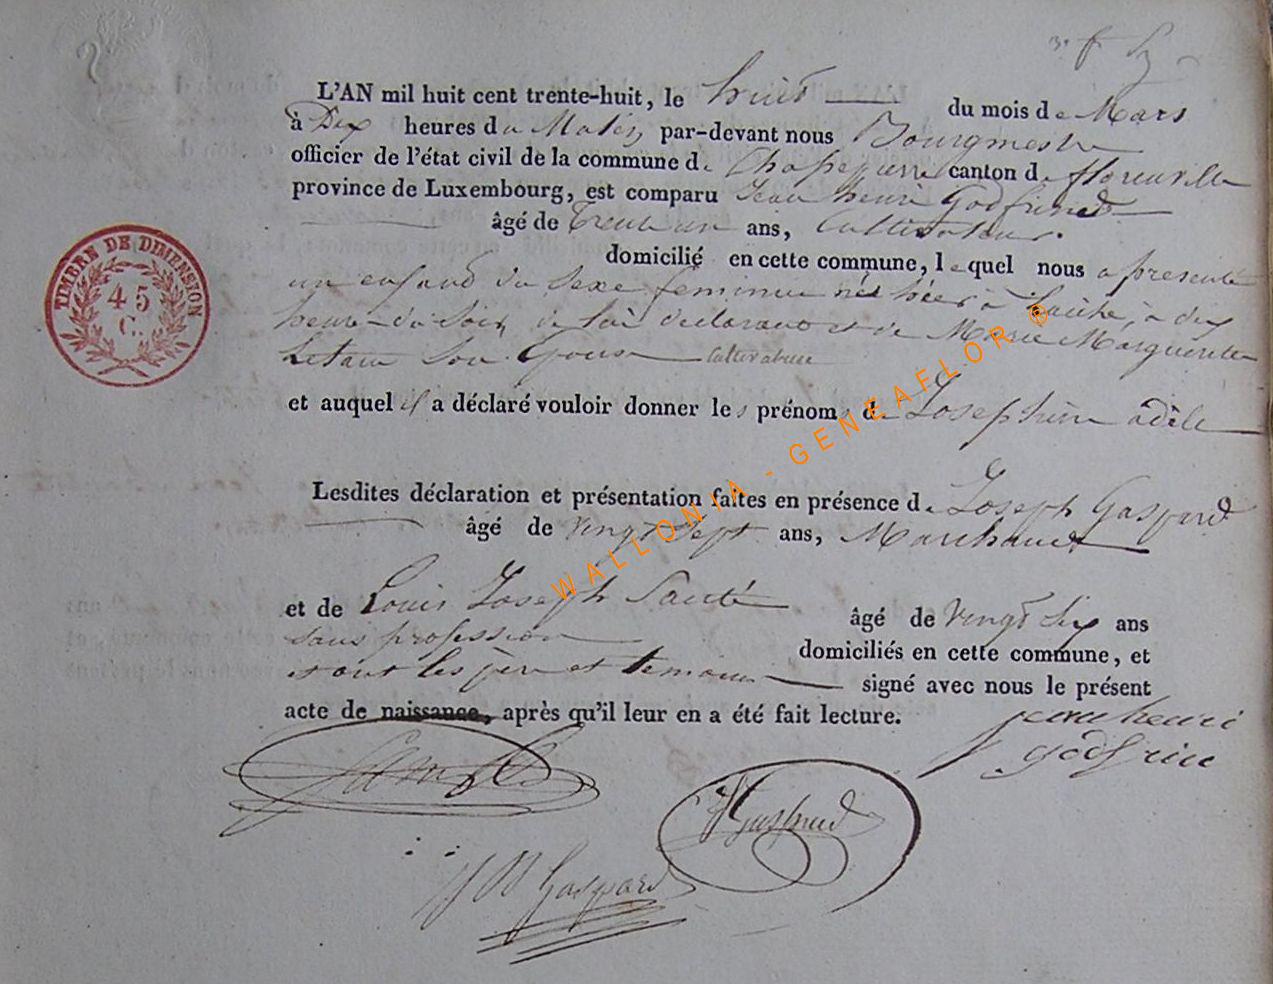 L'AN mil huit cent trente-huit, le huit du mois de Mars
à Dix heures du Matin par-devant nous Bourgmestre
officier de l'état civil de la commune de Chassepierre canton de florenville
province de Luxembourg, est comparu Jean henri Godfrind
âgé de Trente un ans, Cultivateur.
domicilié en cette commune, lequel nous a presenté
un enfand du Sexe feminin née hier à Laiche, à dix
heure du Soir, de lui declarant et de Marie Marguerite
son Epouse Cultivatrice
et auquel il a déclaré vouloir donner les prénoms de Josephine adèle
Lesdites déclaration et présentation faites en présence de Joseph Gaspard
âgé de vingt sept ans, Marchand
et de Louis Joseph Santé âgé de vingt six ans
sans profession
domiciliés en cette commune, et
et ont les père et temoins signé avec nous le présent
acte de naissance, après qu'il leur en a été fait lecture.
jean henri
godfrin
Gaspard
Gaspard
TIMBRE DE DIMENSION
45
C.
WALLONIA - GENEAFLOR ®